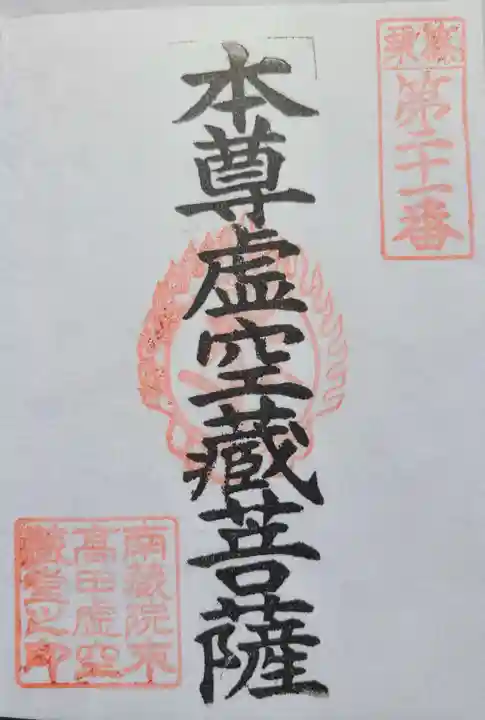 篠栗
第二十一番
本尊虚空蔵菩薩
南蔵院東
高田虚空
蔵堂之印